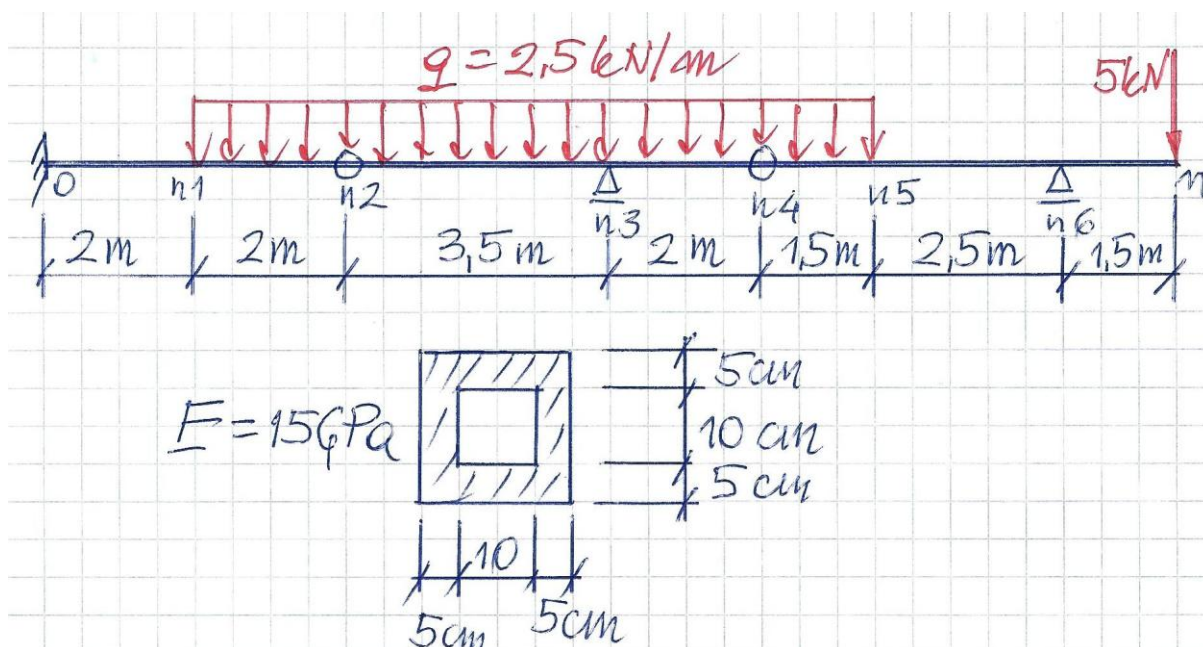 q = 2,5 kN/m
5kN
0
n1
n2
n3
n4
n5
n6
n
2m
2m
3,5m
2m
1,5m
2,5m
1,5m
E = 15GPa
5cm
10 cm
5cm
10
5cm
5cm